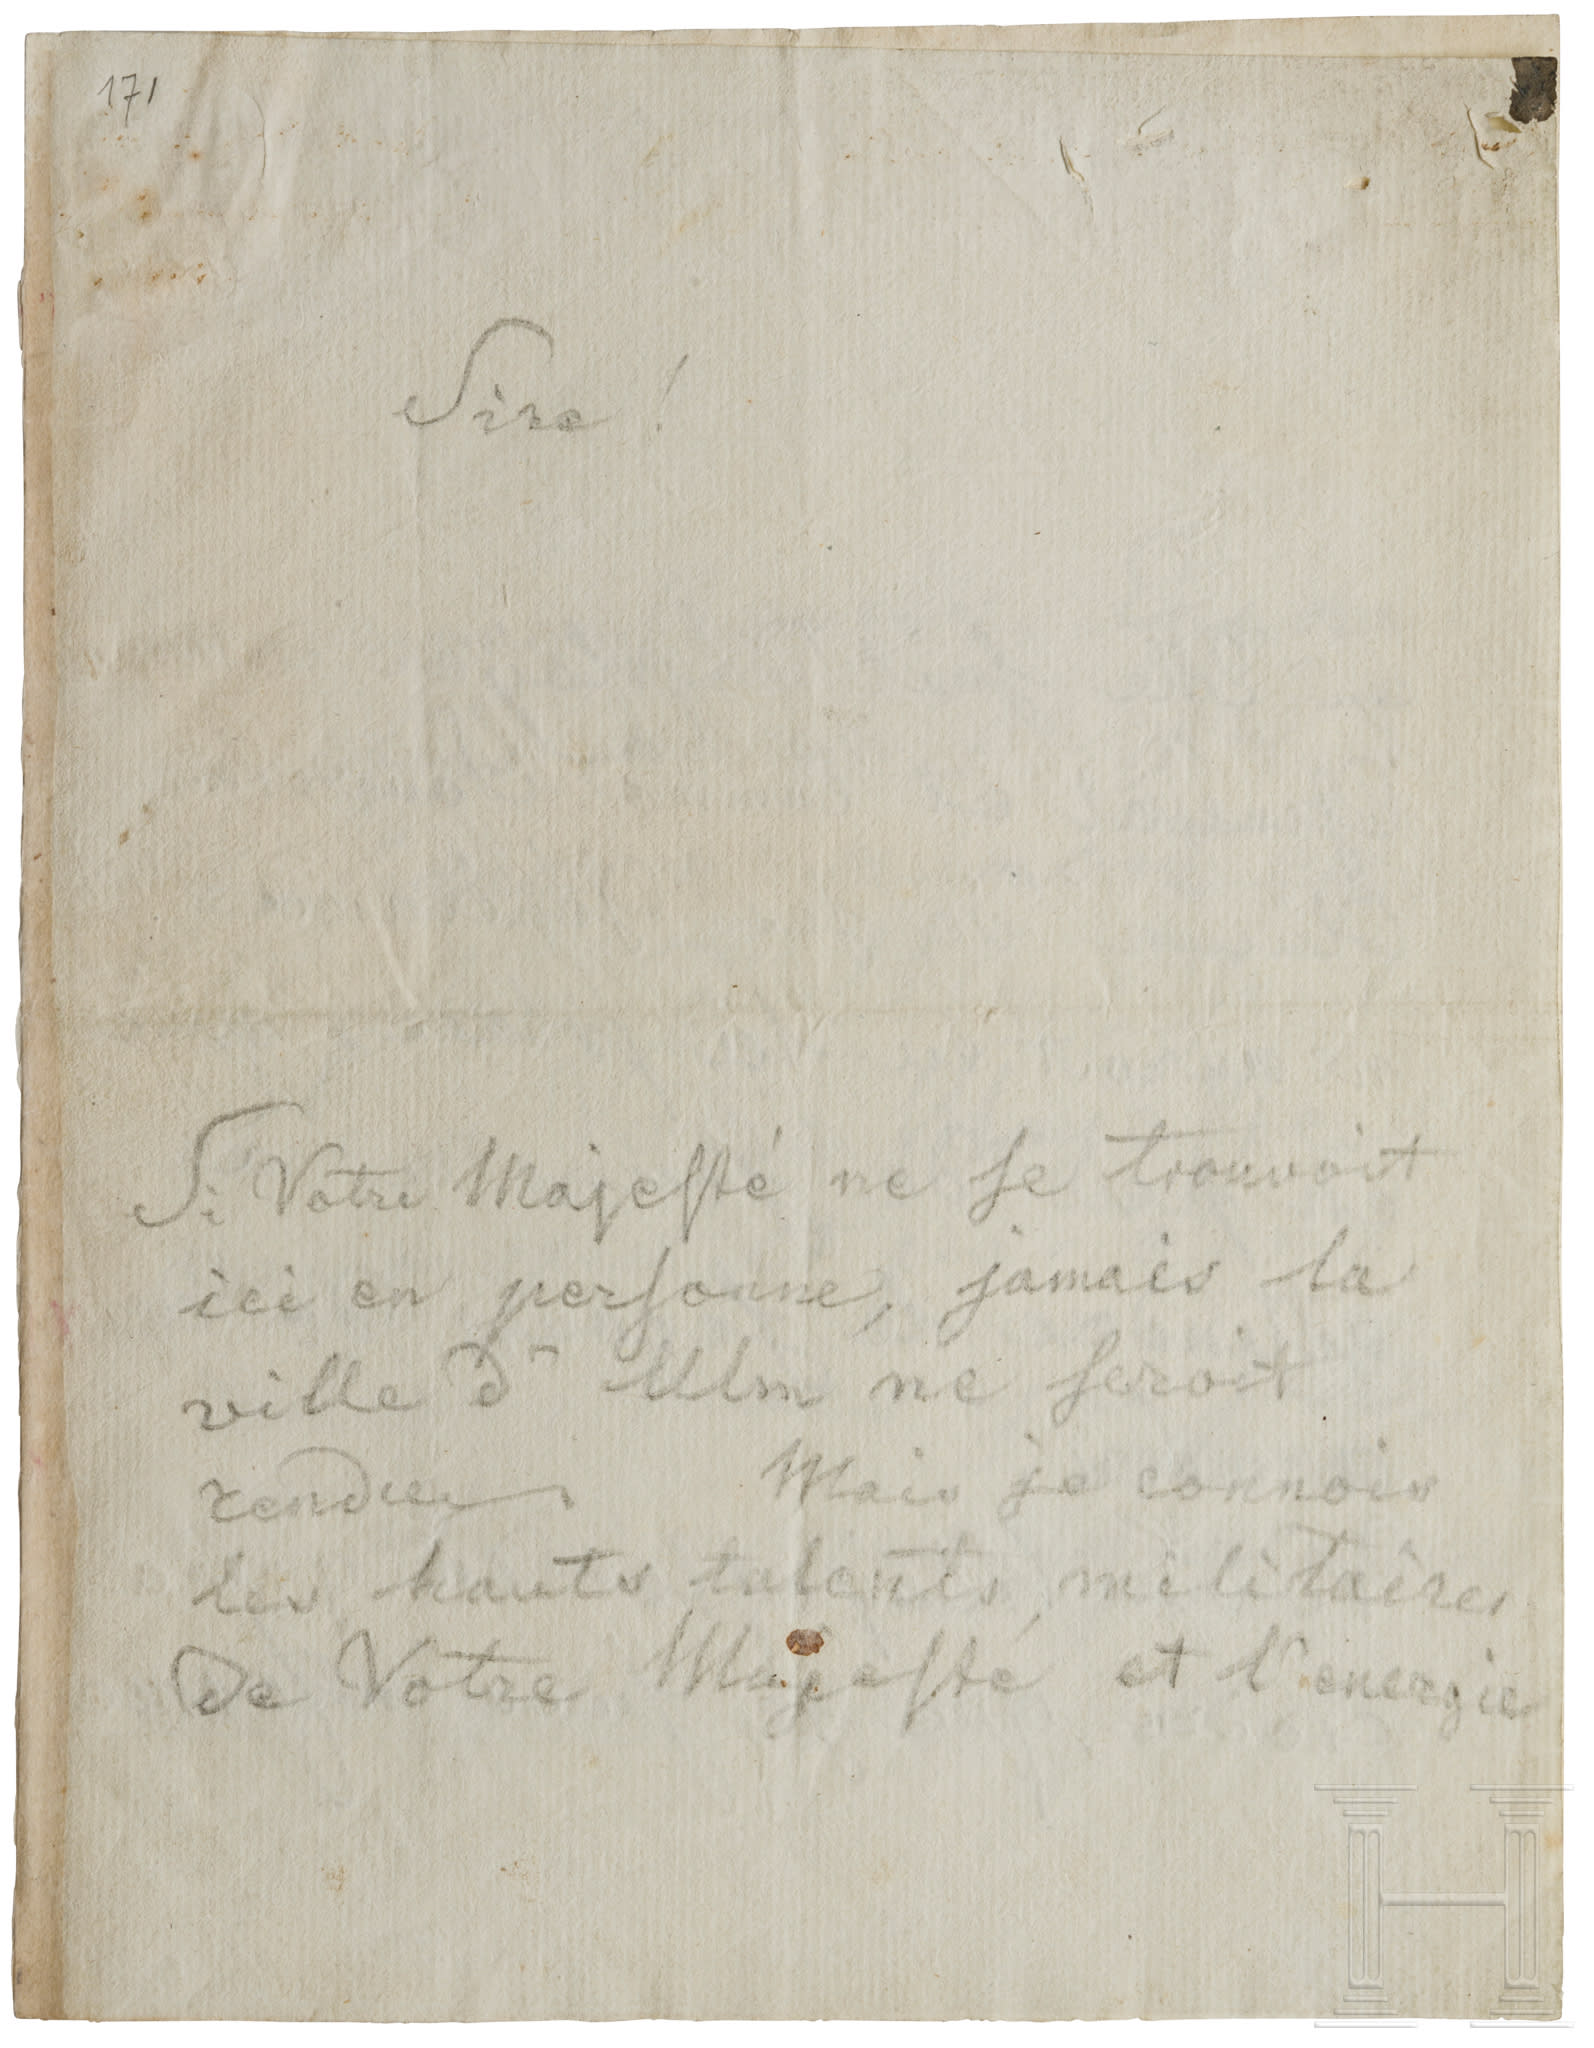 171
Sire!
Si Votre Majesté ne se trouvoit
ici en personne, jamais la
ville d'Ulm ne seroit
rendue. Mais je connois
les hauts talents militaires
de Votre Majesté et l'energie
H